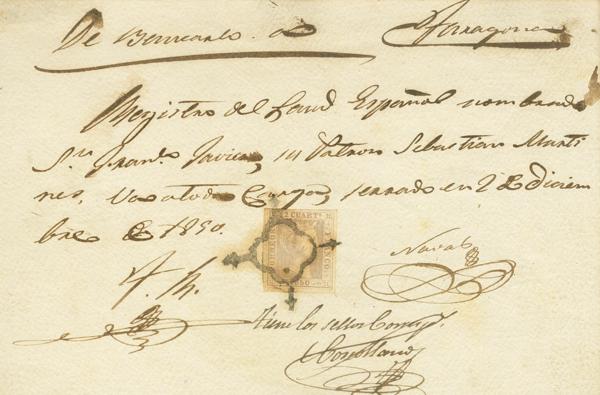 De Benicarlo a Tarragona
Registro del Laud Español nombrado
Sn. Franco. Javier, su Patron Sebastian Marti
nes, Va a todo Cargo, serrado en 2 de diciem
bre de 1850.
Navas
Tiene los sellos